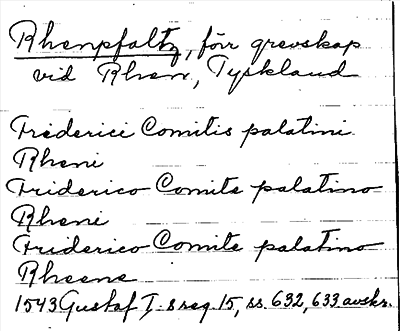 Rhenpfaltz, förr grevskap
vid Rhen, Tyskland
Frederici Comitis palatini
Rheni
Friderico Comite palatino
Rheni
Friderico Comite palatino
Rheene
1543 Gustaf I:s reg. 15, ss. 632, 633 avskr.